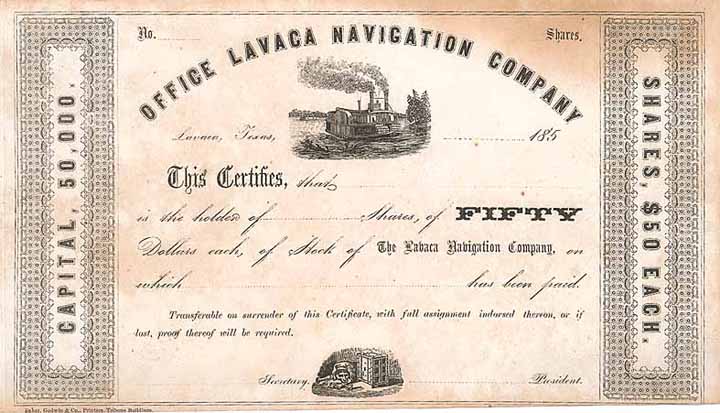 No. Shares.
OFFICE LAVACA NAVIGATION COMPANY
Lavaca, Texas, 185
This Certifies, that
is the holder of Shares, of FIFTY
Dollars each, of Stock of The Lavaca Navigation Company, on
which has been paid.
Transferable on surrender of this Certificate, with full assignment indorsed thereon, or if
lost, proof thereof will be required.
Secretary. President.
CAPITAL, 50,000.
SHARES, $50 EACH.
Baker, Godwin & Co., Printers, Tribune Buildings.